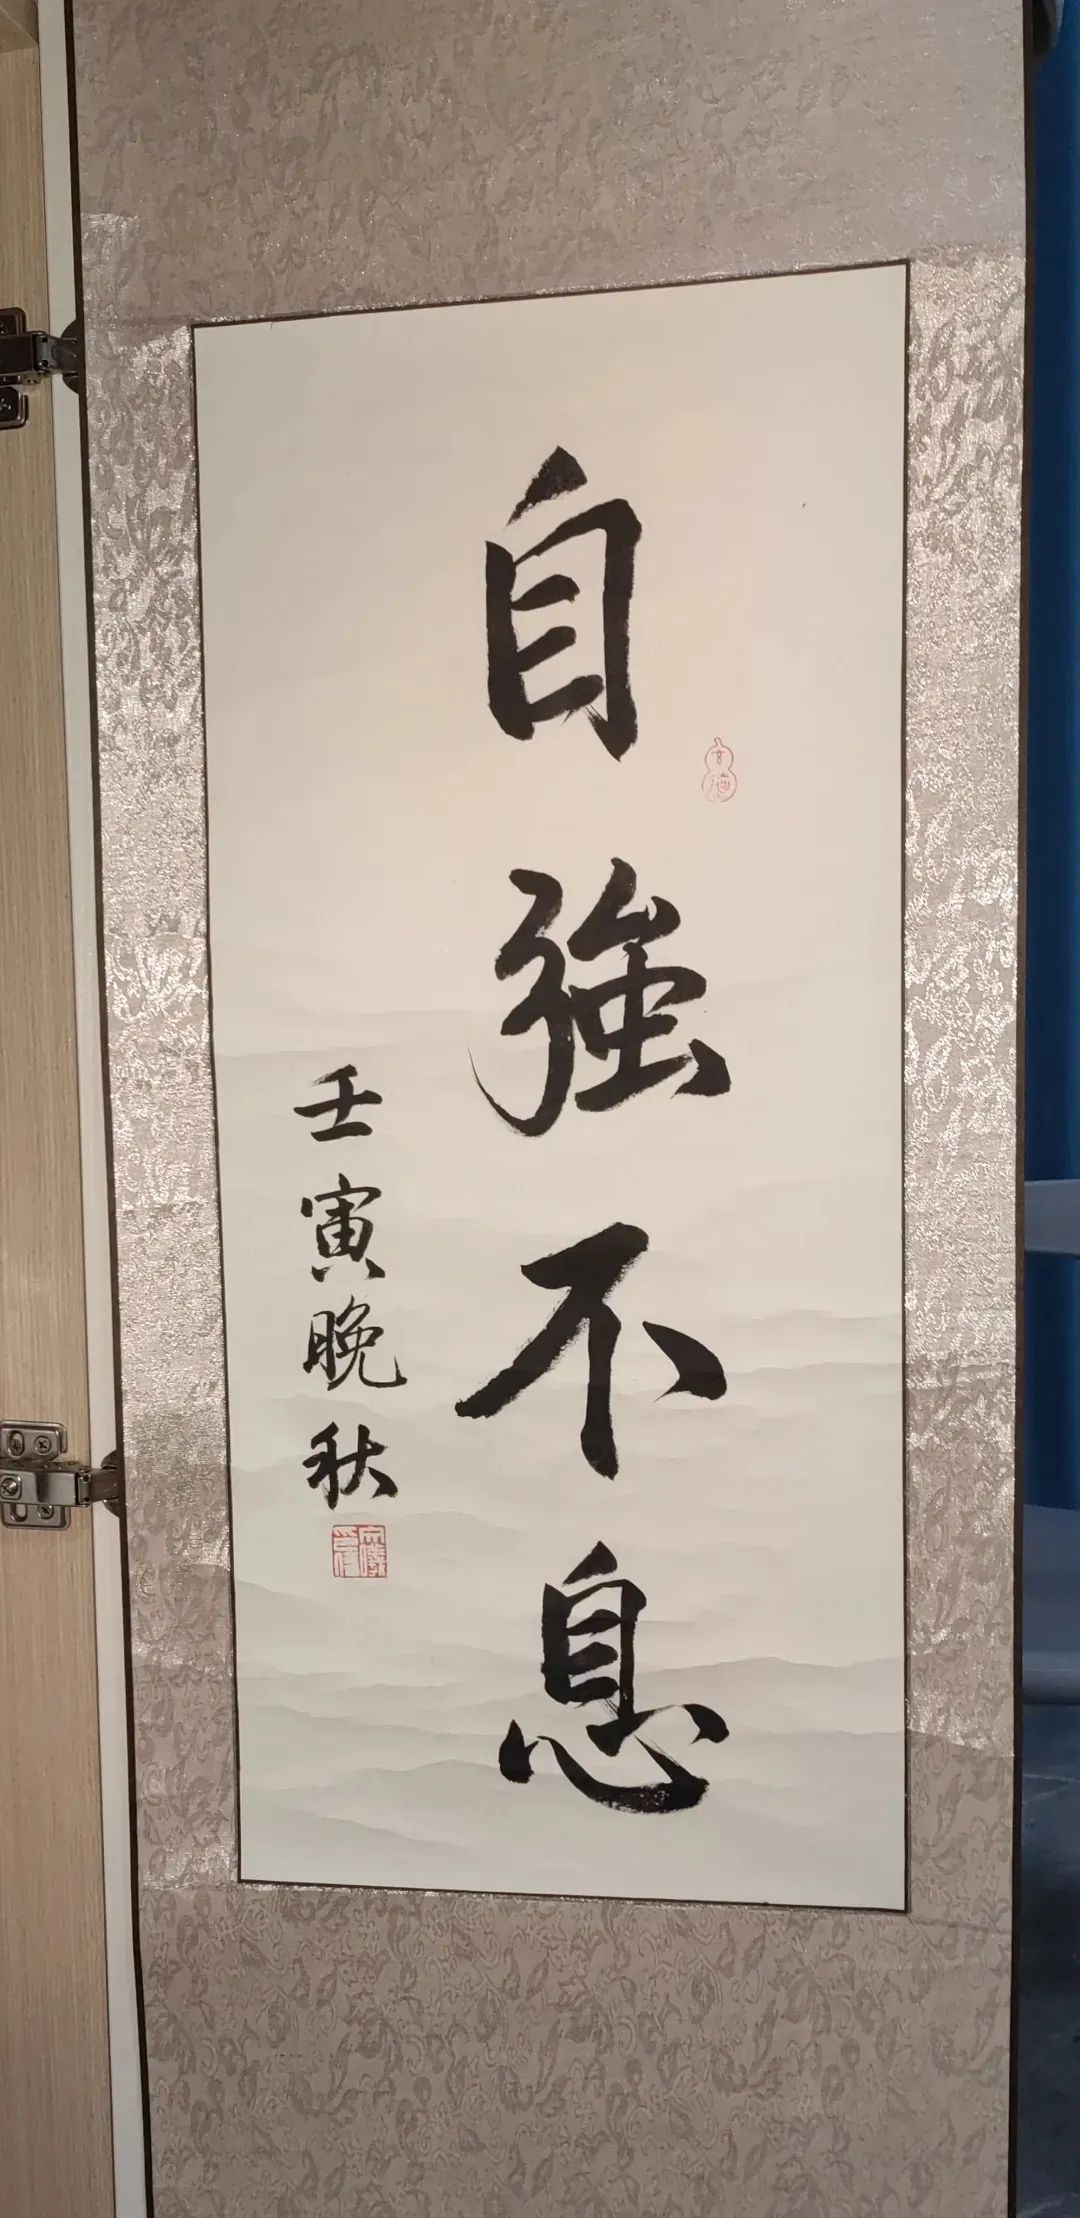 自強不息
玄德
壬寅晚秋